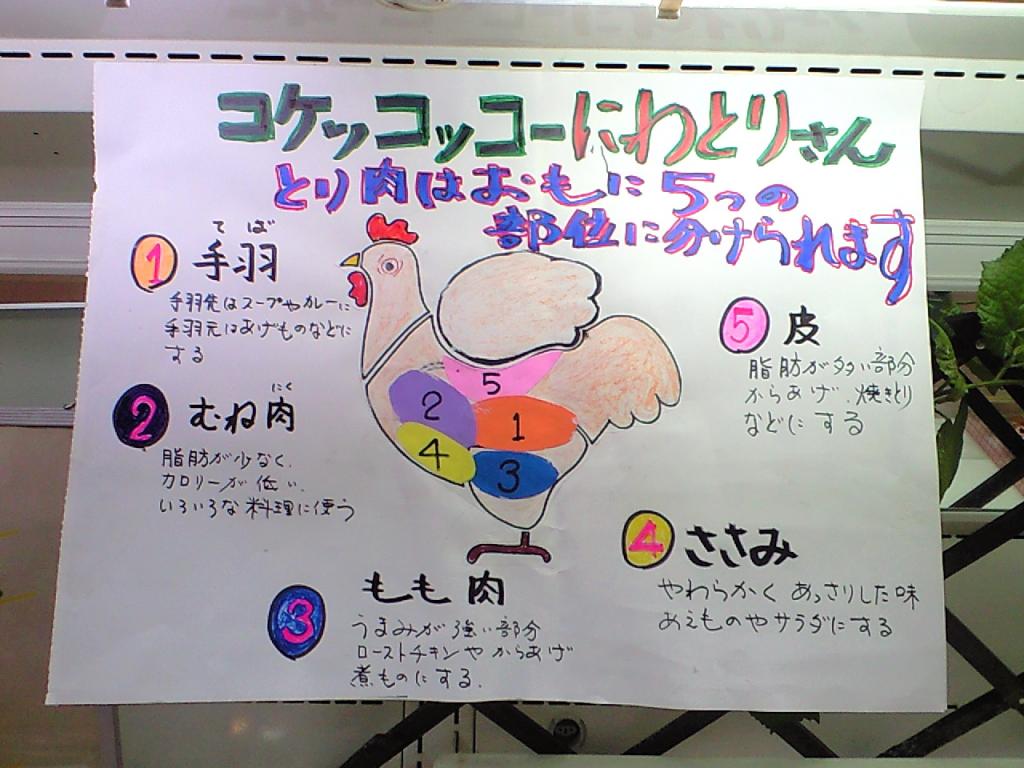 コケッコッコーにわとりさん
とり肉はおもに5つの
部位に分けられます
てば
1 手羽
手羽先はスープやカレーに
手羽元はあげものなどに
する
にく
2 むね肉
脂肪が少なく、
カロリーが低い、
いろいろな料理に使う
5 皮
脂肪が多い部分
からあげ、焼きとり
などにする
5
2
1
4
3
4 ささみ
やわらかくあっさりした味
あえものやサラダにする
3 もも肉
うまみが強い部分
ローストチキンやからあげ
煮ものにする。